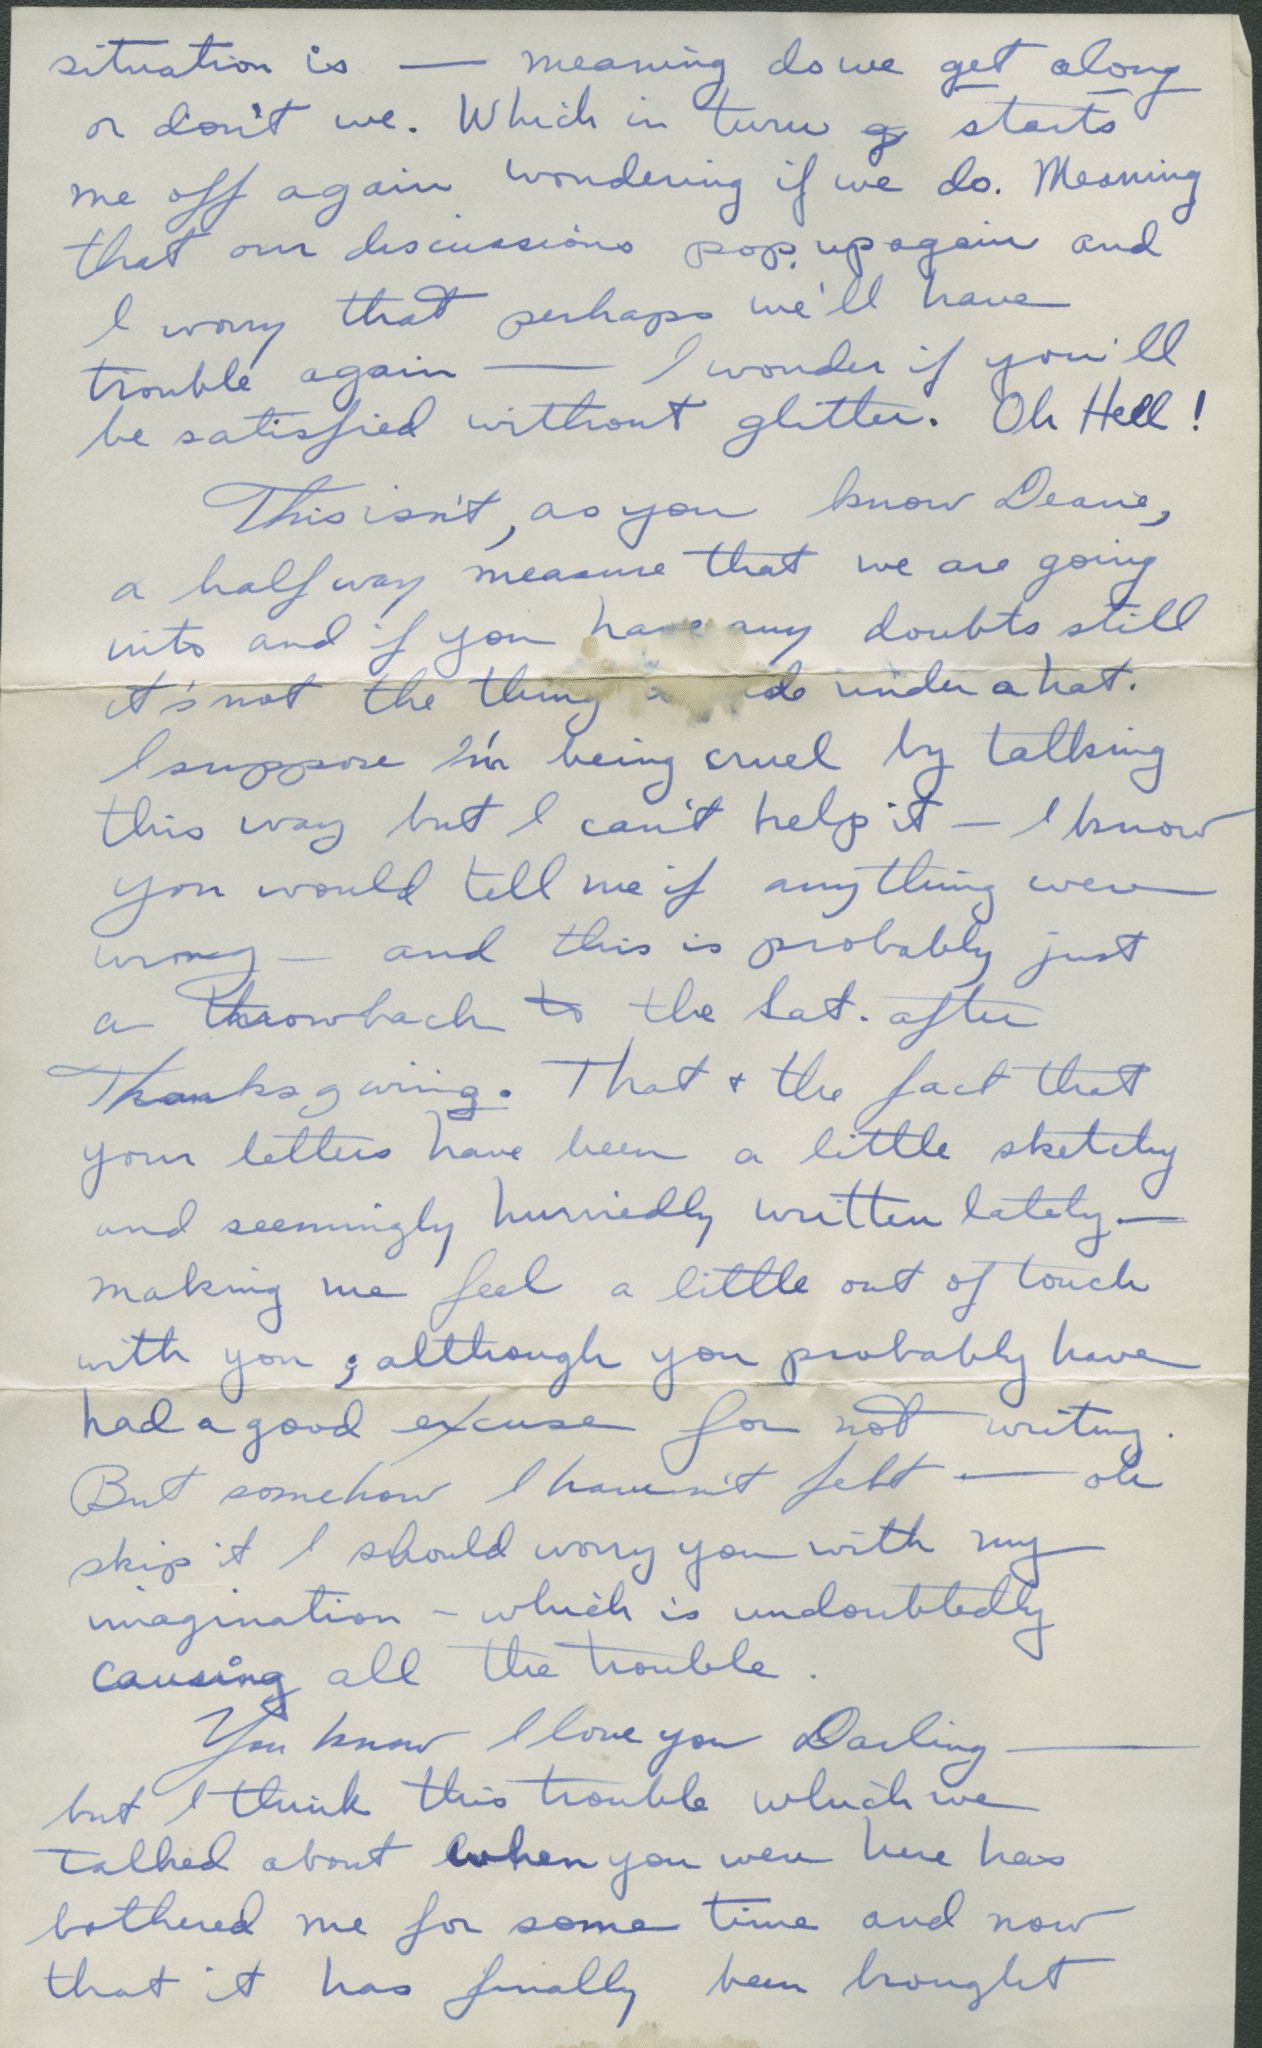 situation is — meaning do we get along
or don't we. Which in turn starts
me off again wondering if we do. Meaning
that our discussions pop up again and
I worry that perhaps we'll have
trouble again — I wonder if you'll
be satisfied without glitter. Oh Hell!
This isn't, as you know Deane,
a halfway measure that we are going
into and if you have any doubts still
it's not the thing under a hat.
I suppose I'm being cruel by talking
this way but I can't help it — I know
you would tell me if anything were
wrong — and this is probably just
a throwback to the Sat. after
Thanksgiving. That + the fact that
your letters have been a little sketchy
and seemingly hurriedly written lately —
making me feel a little out of touch
with you; although you probably have
had a good excuse for not writing.
But somehow I haven't felt — oh
skip it I should worry you with my
imagination - which is undoubtedly
causing all the trouble.
You know I love you Darling —
but I think this trouble which we
talked about when you were here has
bothered me for some time and now
that it has finally been brought